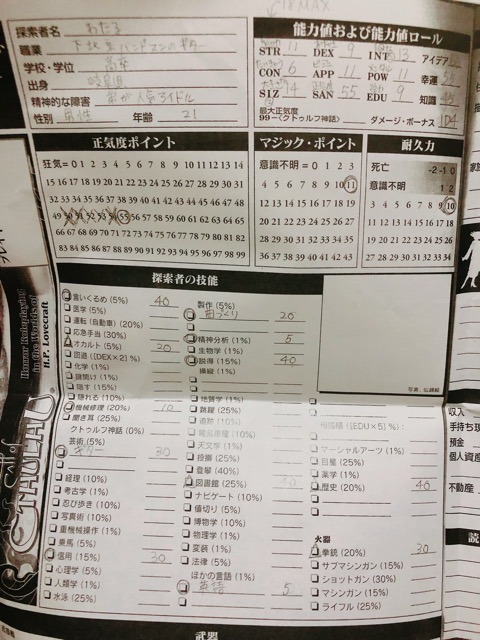 探索者名 わたる
職業
学校・学位 高卒
出身 岐阜県
精神的な障害
性別 男性 年齢 21
18MAX
能力値および能力値ロール
STR 11 DEX 9 INT 13 アイデア
CON 6 APP 11 POW 11 幸運 55
SIZ 14 SAN 55 EDU 9 知識 45
最大正気度
99-〈クトゥルフ神話〉 ダメージ・ボーナス 1D4
正気度ポイント
狂気=0 1 2 3 4 5 6 7 8 9 10 11 12 13 14
15 16 17 18 19 20 21 22 23 24 25 26 27 28 29 30 31
32 33 34 35 36 37 38 39 40 41 42 43 44 45 46 47 48
49 50 51 52 53 54 55 56 57 58 59 60 61 62 63 64 65
66 67 68 69 70 71 72 73 74 75 76 77 78 79 80 81 82
83 84 85 86 87 88 89 90 91 92 93 94 95 96 97 98 99
マジック・ポイント
意識不明=0 1 2 3
4 5 6 7 8 9 10 11
12 13 14 15 16 17 18 19
20 21 22 23 24 25 26 27
28 29 30 31 32 33 34 35
36 37 38 39 40 41 42 43
耐久力
死亡 -2 -1 0
意識不明 1 2
3 4 5 6 7 8 9 10
11 12 13 14 15 16 17 18
19 20 21 22 23 24 25 26
27 28 29 30 31 32 33 34
探索者の技能
言いくるめ (5%) 40
医学 (5%)
運転 (自動車) (20%)
応急手当 (30%)
オカルト (5%) 20
回避 ([DEX×2] %)
化学 (1%)
鍵開け (1%)
隠す (15%)
隠れる (10%)
機械修理 (20%) 10
聞き耳 (25%)
クトゥルフ神話 (0%)
芸術 (5%)
ギター 30
経理 (10%)
考古学 (1%)
忍び歩き (10%)
写真術 (10%)
重機械操作 (1%)
乗馬 (5%)
信用 (15%) 30
心理学 (5%)
人類学 (1%)
水泳 (25%)
製作 (5%)
曲づくり 20
精神分析 (1%) 5
生物学 (1%)
説得 (15%) 40
操縦 (1%)
地質学 (1%)
跳躍 (25%)
追跡 (10%)
電気修理 (10%)
天文学 (1%)
投擲 (25%)
登攀 (40%)
図書館 (25%) 30
ナビゲート (10%)
値切り (5%)
博物学 (10%)
物理学 (1%)
変装 (1%)
法律 (5%)
ほかの言語 (1%)
英語 5
母国語 ([EDU×5] %):
マーシャルアーツ (1%)
目星 (25%)
薬学 (1%)
歴史 (20%) 40
火器
拳銃 (20%) 30
サブマシンガン (15%)
ショットガン (30%)
マシンガン (15%)
ライフル (25%)
写真、似顔絵
武器
Horror Roleplaying
in the Worlds of
H.P. Lovecraft
CALL
CTHULHU
収入
手持ち現
預金
個人資産
不動産